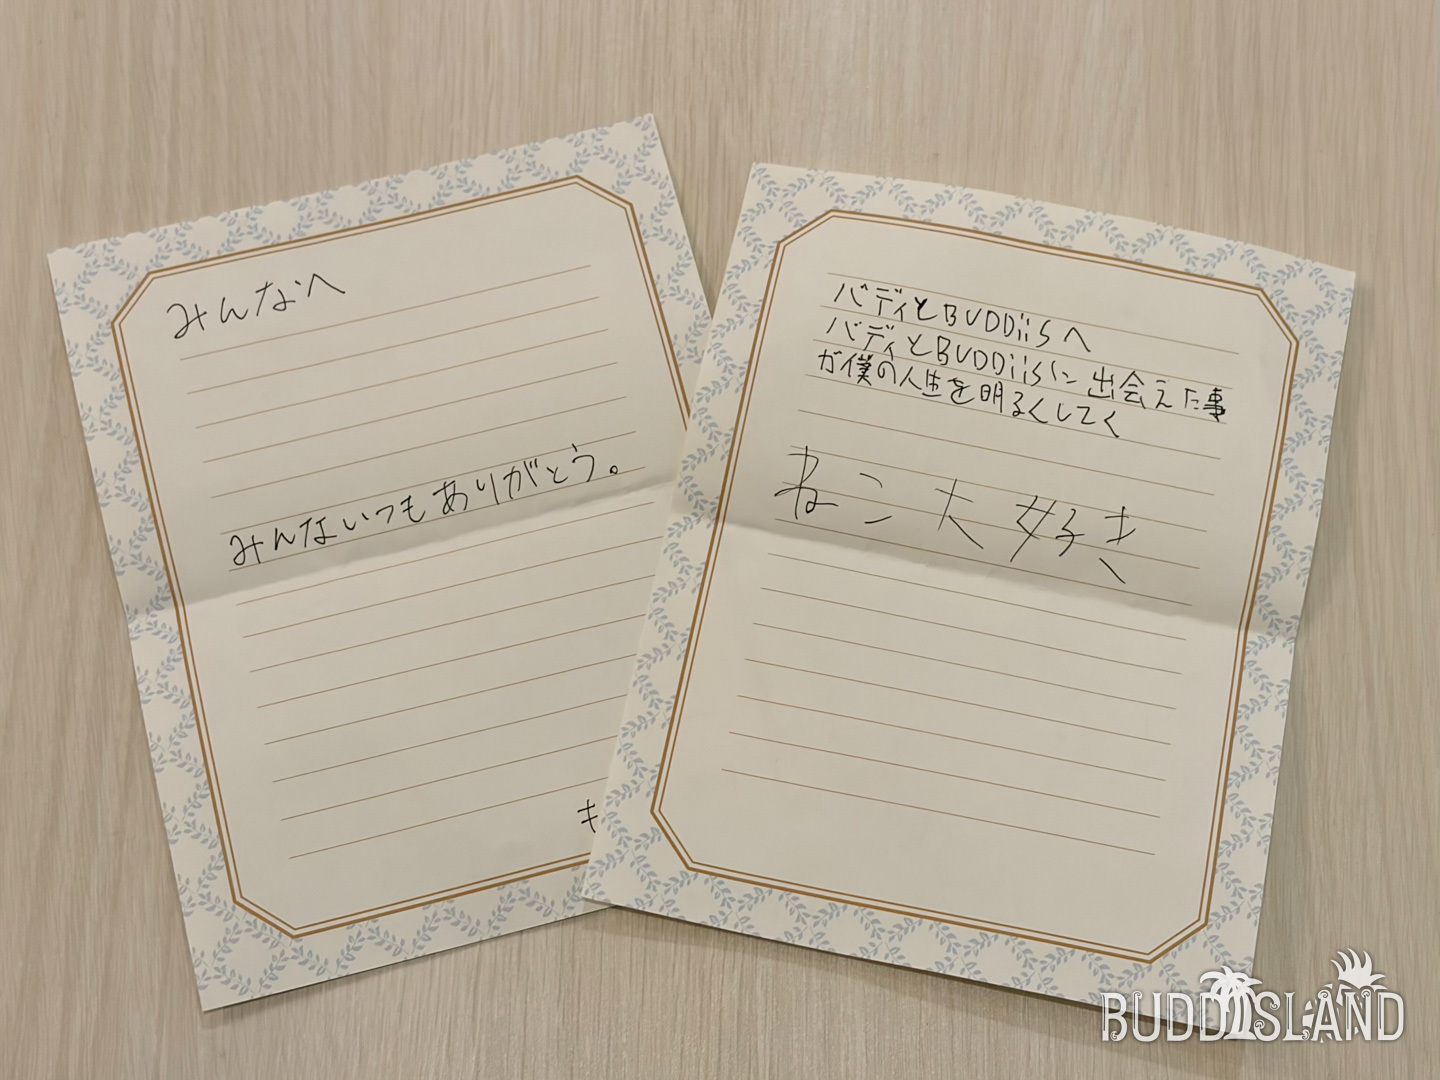 みんなへ
みんないつもありがとう。
キ
バディとBUDDiiSへ
バディとBUDDiiSに出会えた事
が僕の人生を明るくしてく
ねこ大好き
BUDDIISLAND